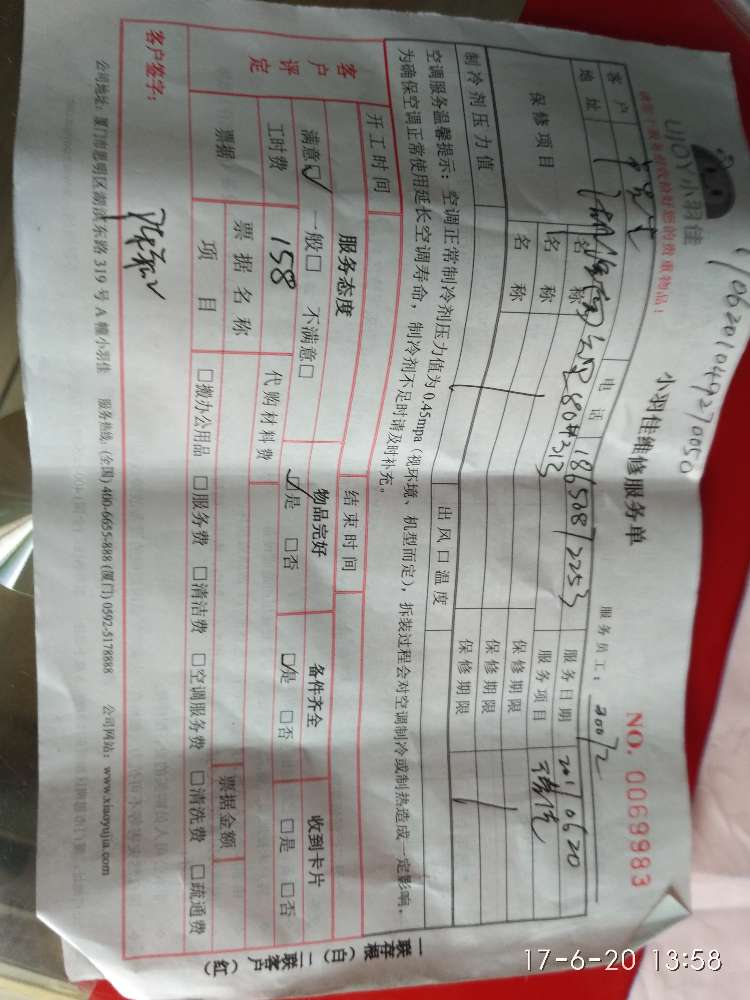 UJOY小羽佳
小羽佳维修服务单
NO. 0069983
服务员工:
客户
电话 18650812253
服务日期 20170620
地址
服务项目
保修项目
名称
保修期限
名称
保修期限
名称
保修期限
制冷剂压力值
出风口温度
空调服务温馨提示:空调正常制冷剂压力值为0.45mpa(视环境、机型而定),拆装过程会对空调制冷或制热造成一定影响,
为确保空调正常使用延长空调寿命,制冷剂不足时请及时补充。
开工时间
结束时间
客户评定
服务态度
物品完好
备件齐全
收到卡片
满意☑ 一般□ 不满意□
☑是 □否
☑是 □否
□是 □否
工时费
158
代购材料费
票据
票据名称
票据金额
项目
□搬办公用品 □服务费 □清洁费 □空调服务费 □清洗费 □疏通费
客户签字:
公司地址:厦门市思明区湖滨东路319号A幢小羽佳 服务热线:(全国)400-6655-888 (厦门)0592-5178888 公司网站:www.xiaoyujia.com
一联存根(白)二联客户(红)
17-6-20 13:58